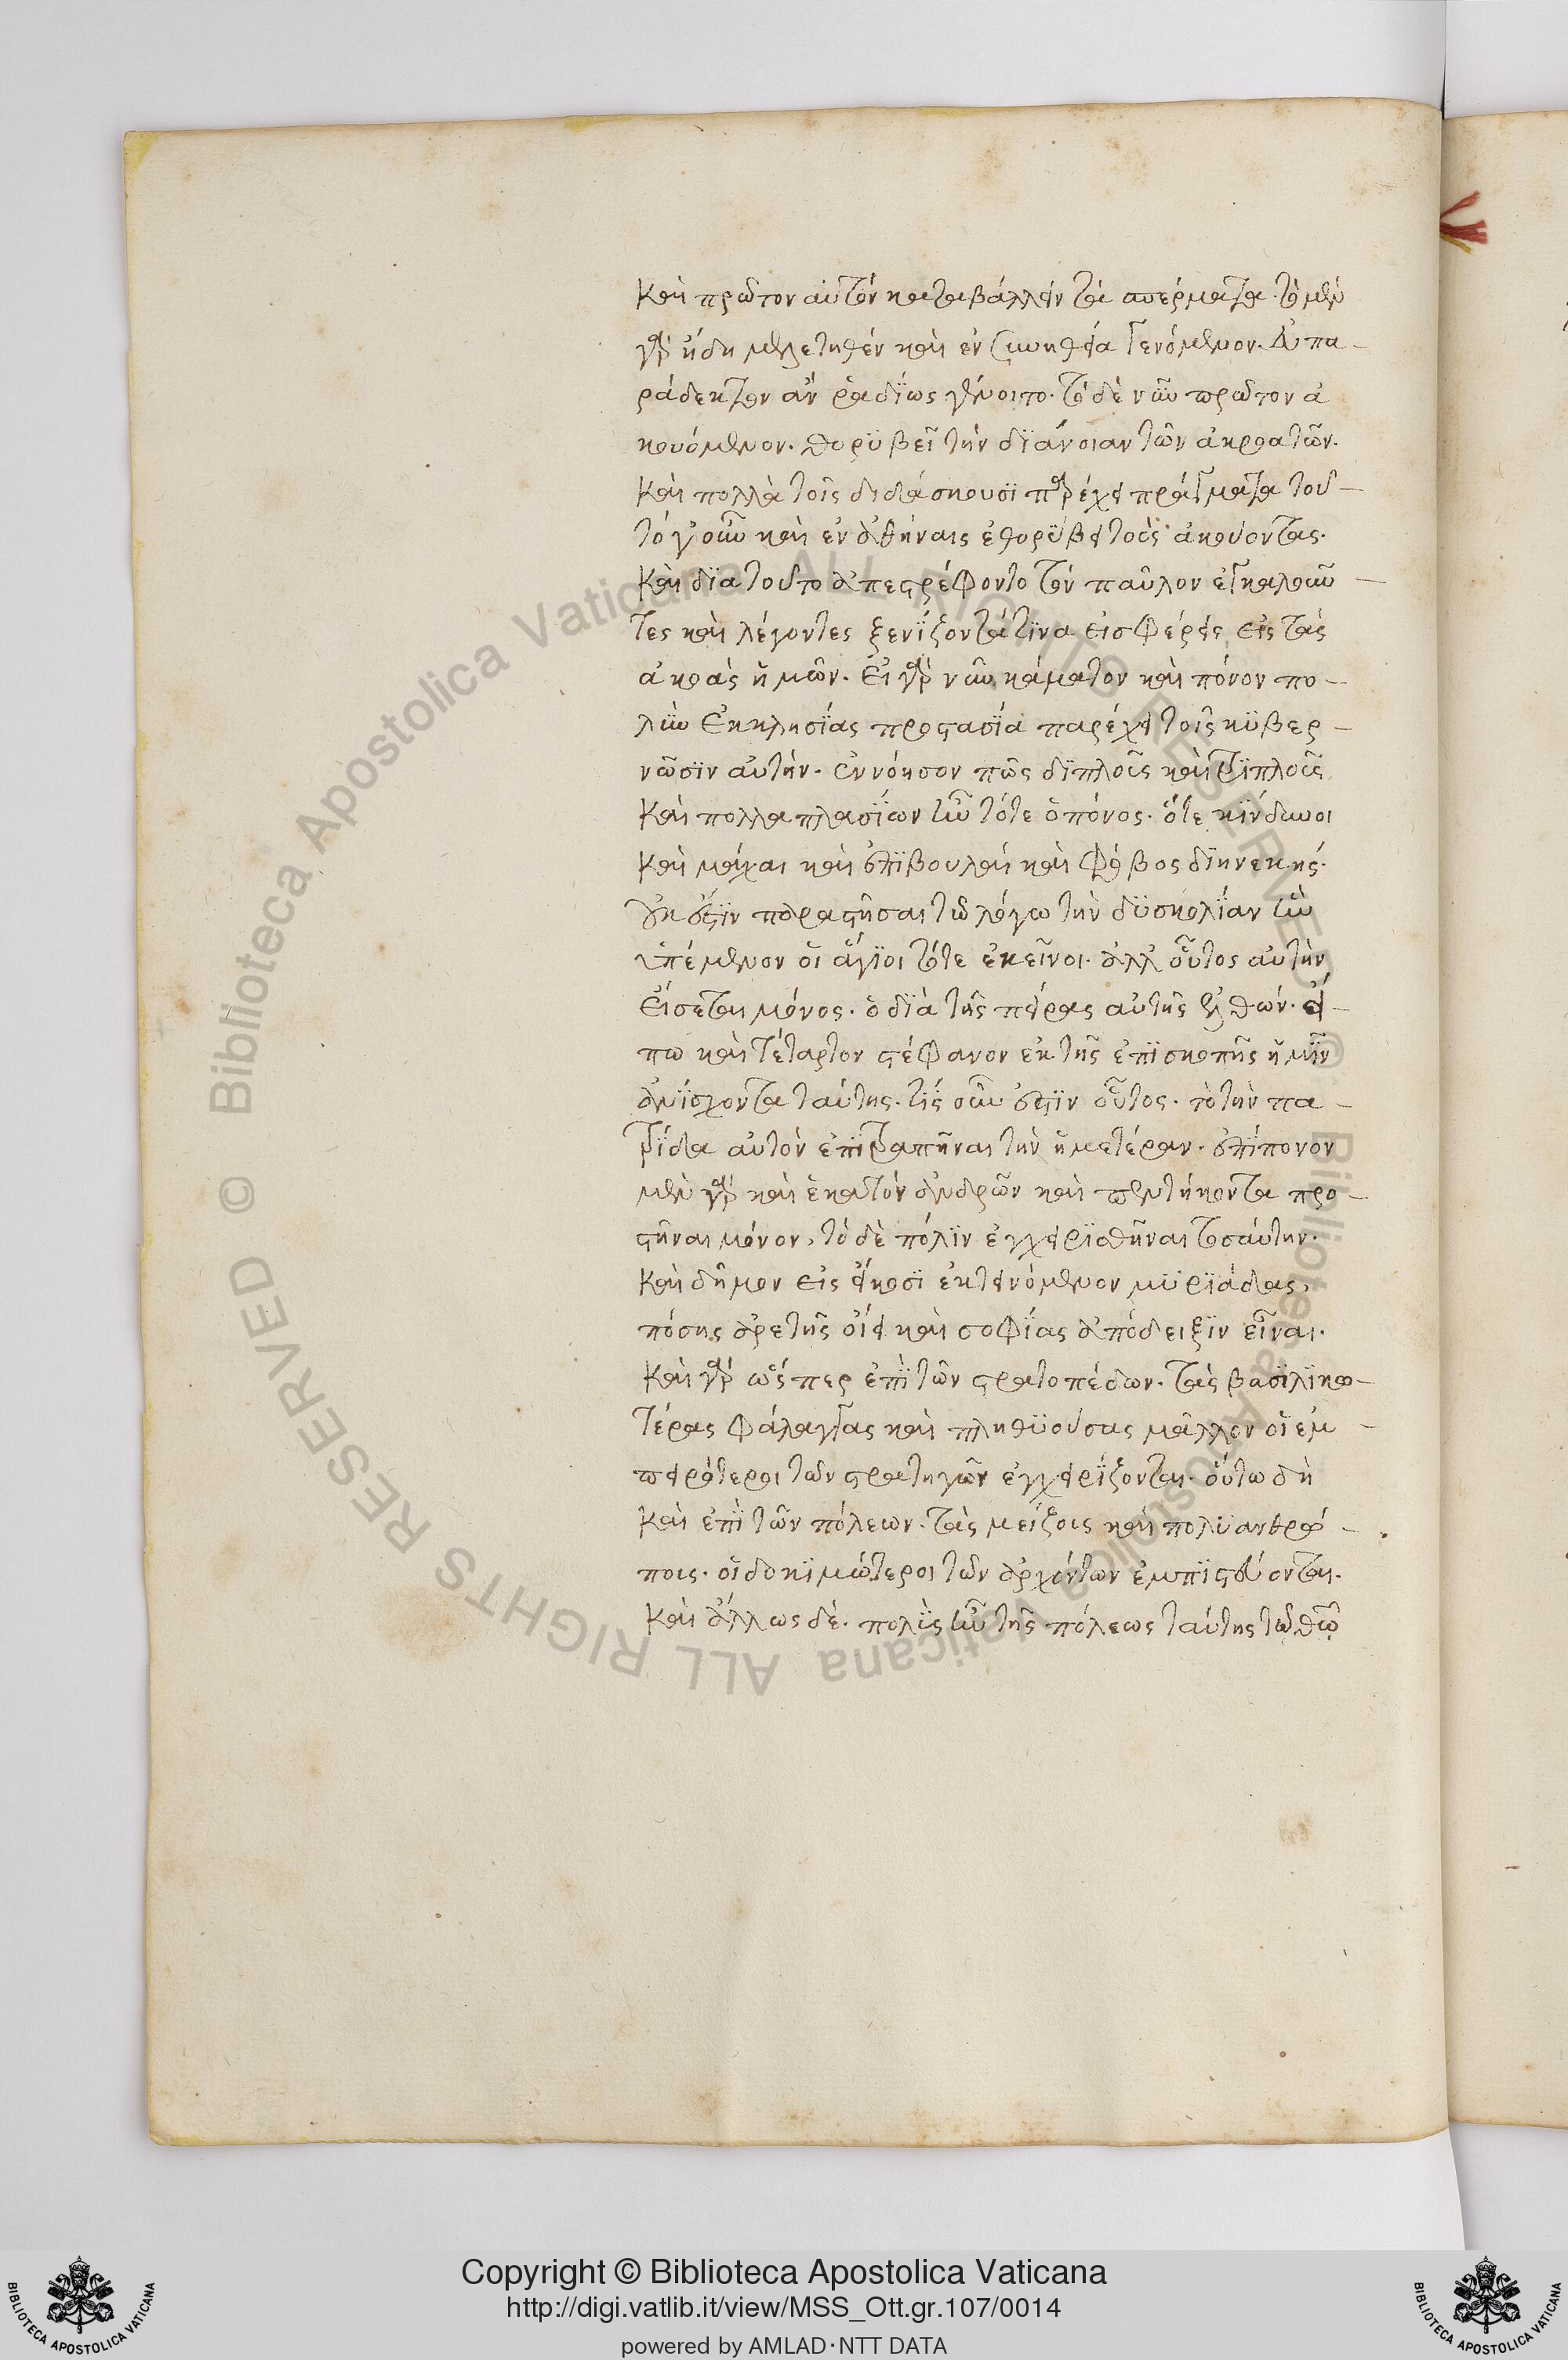 Καὶ πρῶτον αὐτὸν καταβάλλειν τὰ σπέρματα· τὸ μὲν
γὰρ ἤδη μελετηθὲν καὶ ἐν συνηθεία γενόμενον. εὐπα-
ράδεκτον ἂν ῥαδΐως γένοιτο. τὸ δὲ νῦν πρῶτον ἀ
κουόμενον. θορϋβεῖ τὴν δϊάνοιαν τῶν ἀκροατῶν.
Καὶ πολλὰ τοῖς διδάσκουσϊ παρέχει πράγματα τοῦ-
το γοῦν καὶ ἐν ἀθήναις ἐθορΰβει τοὺς ἀκούοντας.
Καὶ δϊατοῦτο ἀπεστρέφοντο τὸν παῦλον ἐγκαλοῦν
τες καὶ λέγοντες ξενΐζοντά τϊνα εἰσφέρεις εἰς τὰς
ἀκοὰς ἡμῶν. Εἰ γὰρ νῦν κάματον καὶ πόνον πο-
λὺν Ἐκκλησΐας προστασΐα παρέχει τοῖς κϋβερ-
νῶσϊν αὐτὴν. ἐννόησον πῶς δϊπλοῦς καὶ τρϊπλοῦς
Καὶ πολλαπλασΐων ἦν τότε ὁ πόνος. ὅτε κΐνδυνοι
Καὶ μάχαι καὶ ἐπϊβουλαὶ καὶ φόβος δϊηνεκής.
οὐκ ἔστϊν παραστῆσαι τῶ λόγω τὴν δϋσκολΐαν ἣν
ὑπέμενον οἱ ἅγϊοι τότε ἐκεῖνοι. ἀλλ οὗτος αὐτὴν
εἴσεται μόνος. ὁ δϊὰ τῆς πείρας αὐτῆς ἐλθών. εἴ-
πω καὶ τέταρτον στέφανον ἐκ τῆς ἐπϊσκοπῆς ἡμῖν
ἀνΐσχοντα ταύτης. τΐς οὖν ἐστϊν οὗτος. τὸ τὴν πα-
τρΐδα αὐτὸν ἐπϊτραπῆναι τὴν ἡμετέραν. ἐπΐπονον
μὲν γὰρ καὶ ἑκατὸν ἀνδρῶν καὶ πεντήκοντα προ-
στῆναι μόνον, τὸ δὲ πόλϊν ἐγχειρϊσθῆναι τοσαύτην.
Καὶ δῆμον εἰς εἴκοσϊ ἐκτεινόμενον μϋρϊάδας,
πόσης ἀρετῆς οἴει καὶ σοφΐας ἀπόδειξϊν εἶναι.
Καὶ γὰρ ὥσπερ ἐπϊ τῶν στρατοπέδων. τὰς βασϊλϊκω-
τέρας φάλαγγας καὶ πληθϋούσας μᾶλλον οἱ ἐμ-
πειρότεροι τῶν στρατηγῶν ἐγχειρΐζονται. οὕτω δὴ
Καὶ ἐπϊ τῶν πόλεων. τὰς μείζοις καὶ πολϋανθρώ-
ποις. οἱ δοκϊμώτεροι τῶν ἀρχόντων ἐμπϊστεύονται.
Καὶ ἄλλως δὲ. πολὺς ἦν τῆς πόλεως ταύτης τῶ θῶ
Copyright © Biblioteca Apostolica Vaticana
http://digi.vatlib.it/view/MSS_Ott.gr.107/0014
powered by AMLAD·NTT DATA
BIBLIOTECA APOSTOLICA VATICANA
BIBLIOTECA APOSTOLICA VATICANA
© Biblioteca Apostolica Vaticana ALL RIGHTS RESERVED
© Biblioteca Apostolica Vaticana ALL RIGHTS RESERVED